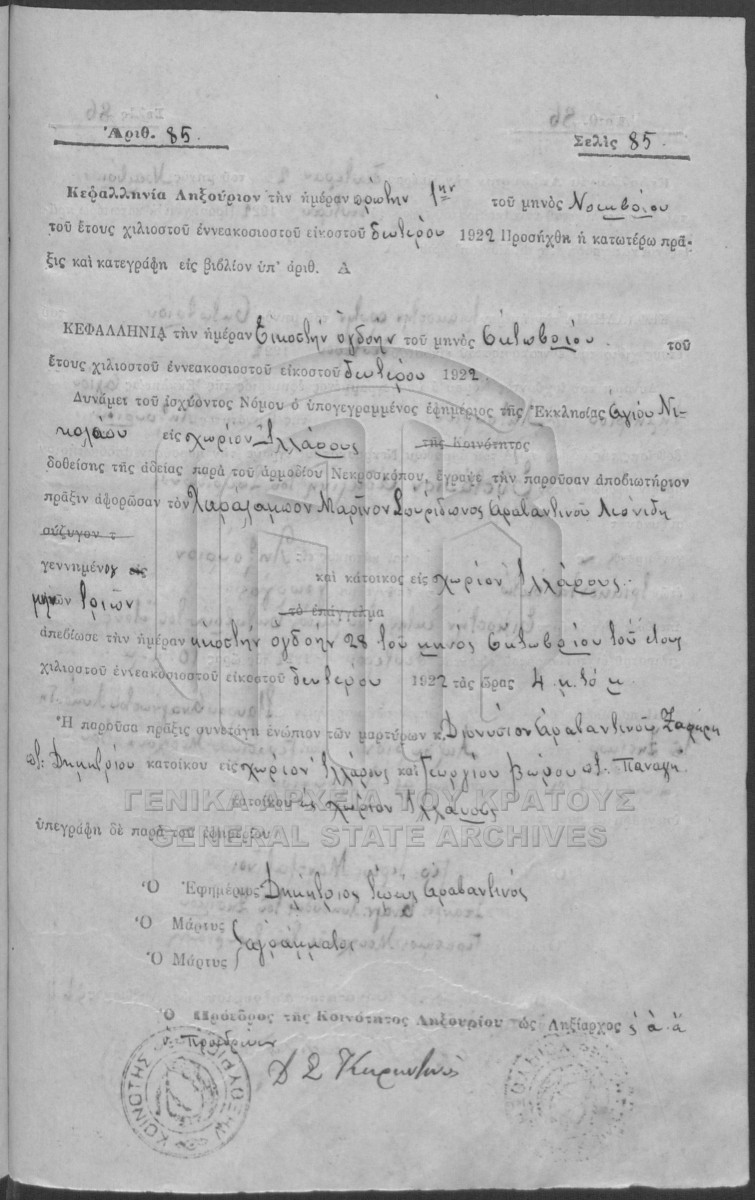 Ἀριθ. 85.
Σελὶς 85.
Κεφαλληνία Ληξούριον τὴν ἡμέραν πρώτην 1ην τοῦ μηνὸς Νοεμβρίου
τοῦ ἔτους χιλιοστοῦ ἐννεακοσιοστοῦ εἰκοστοῦ δευτέρου 1922 Προσήχθη ἡ κατωτέρω πρᾶ-
ξις καὶ κατεγράφη εἰς βιβλίον ὑπ' ἀριθ. Α
ΚΕΦΑΛΛΗΝΙΑ τὴν ἡμέραν Εἰκοστὴν ὀγδόην τοῦ μηνὸς Ὀκτωβρίου. τοῦ
ἔτους χιλιοστοῦ ἐννεακοσιοστοῦ εἰκοστοῦ δευτέρου 1922.
Δυνάμει τοῦ ἰσχύοντος Νόμου ὁ ὑπογεγραμμένος ἐφημέριος τῆς Ἐκκλησίας Ἁγίου Νι-
κολάου εἰς χωρίον Ἰλλάρους τῆς Κοινότητος
δοθείσης τῆς ἀδείας παρὰ τοῦ ἁρμοδίου Νεκροσκόπου, ἔγραψε τὴν παροῦσαν ἀποβιωτήριον
πρᾶξιν ἀφορῶσαν τὸν Χαράλαμπον Μαρῖνον Σπυρίδωνος Ἀραβαντινοῦ Λεονίδη
σύζυγον τ
γεννημένος εἰς καὶ κάτοικος εἰς χωρίον Ἰλλάρους.
μηνῶν τριῶν τὸ ἐπάγγελμα
ἀπεβίωσε τὴν ἡμέραν ηκοστὴν ὀγδοὴν 28 τοῦ μηνὸς Ὀκτωβρίου τοῦ ἔτους
χιλιοστοῦ ἐννεακοσιοστοῦ εἰκοστοῦ δευτέρου 1922 τὰς ὥρας 4 μ. τό μ.
Ἡ παροῦσα πρᾶξις συνετάγη ἐνώπιον τῶν μαρτύρων κ. Διονύσιον Ἀραβαντινοῦ Ζαφύρη
ποτ: Δημητρίου κατοίκου εἰς χωρίον Ἰλλάρους καὶ Γεωργίου Βώρου ποτ. Παναγή
κατοίκου εἰς χωρίον Ἰλλάρους
ὑπεγράφη δὲ παρὰ τοῦ ἐφημερίου
ΓΕΝΙΚΑ ΑΡΧΕΙΑ ΤΟΥ ΚΡΑΤΟΥΣ
GENERAL STATE ARCHIVES
Ὁ Ἐφημέριος Δημήτριος Ἱερεὺς Ἀραβαντινὸς
Ὁ Μάρτυς
ἀγράμματοι
Ὁ Μάρτυς
Ὁ Πρόεδρος τῆς Κοινότητος Ληξουρίου ὡς Ληξίαρχος ἀ. ἀ
ὁ προεδρεύων
ΚΟΙΝΟΤΗΣ ΛΗΞΟΥΡΙΟΥ